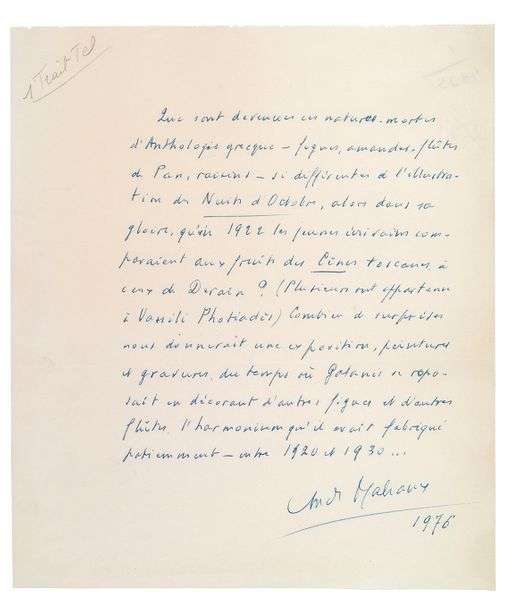 1 Trait Tel
Que sont devenues ces natures-mortes
d'Anthologie grecque – figues, amandes, flûtes
de Pan, raisins – si différentes de l'illustra-
tion des Nuits d'Octobre, alors dans sa
gloire, qu'en 1922 les jeunes écrivains com-
paraient aux fruits des Cènes toscanes, à
ceux de Derain ? (Plusieurs ont appartenu
à Vassili Photiadès) Combien de surprises
nous donnerait une exposition, peintures
et gravures, du temps où Galanis se repo-
sait en décorant d'autres figues et d'autres
flûtes, l'harmonium qu'il avait fabriqué
patiemment – entre 1920 et 1930 ...
André Malraux
1976